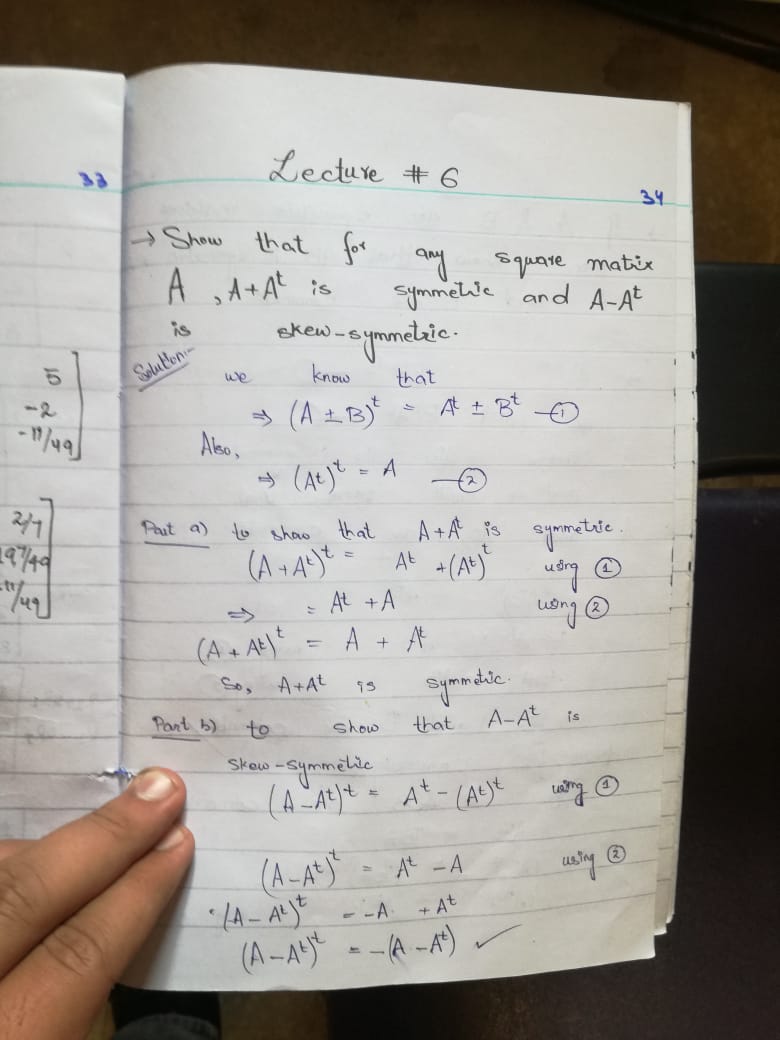 33
5
-2
-11/49
2/7
197/49
11/49
Lecture # 6
34
→ Show that for any square matrix
A , A+Aᵗ is symmetric and A-Aᵗ
is skew-symmetric.
Solution:-
we know that
⇒ (A ± B)ᵗ = Aᵗ ± Bᵗ —①
Also,
⇒ (Aᵗ)ᵗ = A —②
Part a) to show that A+Aᵗ is symmetric.
(A+Aᵗ)ᵗ = Aᵗ +(Aᵗ)ᵗ using ①
⇒ = Aᵗ +A using ②
(A+Aᵗ)ᵗ = A + Aᵗ
So, A+Aᵗ is symmetric.
Part b) to show that A-Aᵗ is
skew-symmetric
(A-Aᵗ)ᵗ = Aᵗ - (Aᵗ)ᵗ using ①
(A-Aᵗ)ᵗ = Aᵗ -A using ②
(A-Aᵗ)ᵗ = -A +Aᵗ
(A-Aᵗ)ᵗ = -(A-Aᵗ) ✓